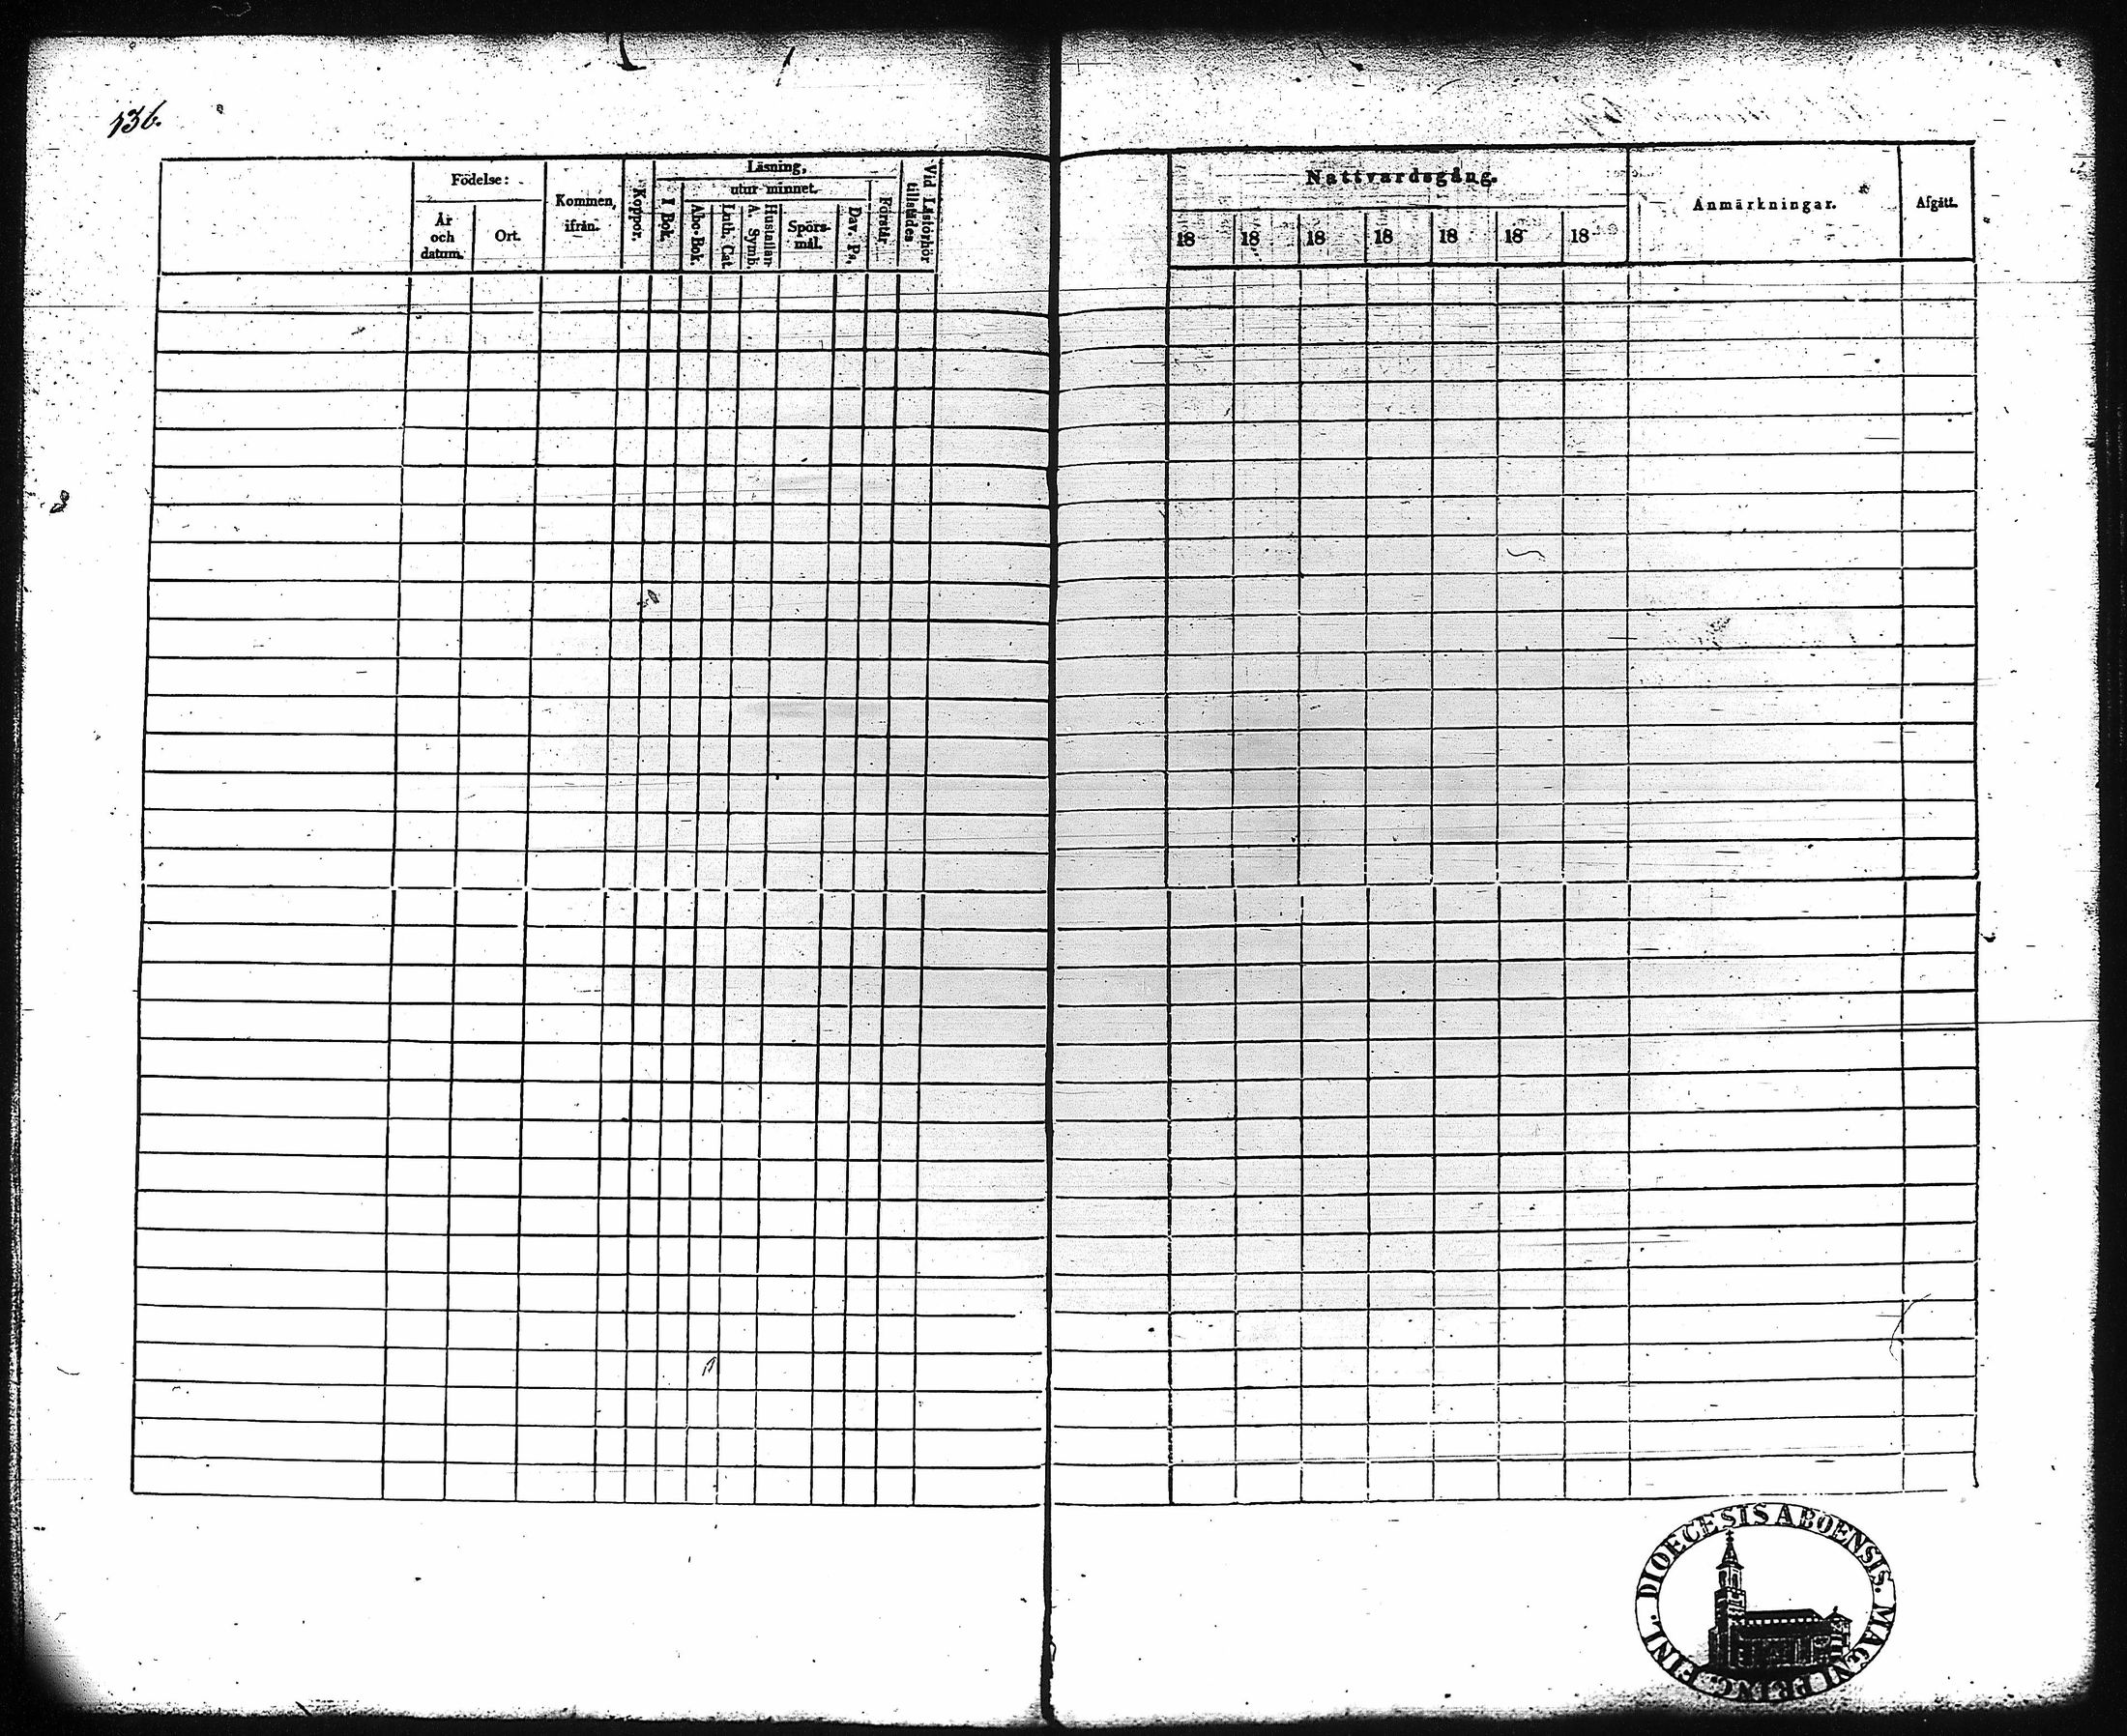 136.
Födelse:
År och datum.
Ort.
Kommen ifrån.
Koppor.
Läsning,
utur minnet.
I Bok.
Abc-Bok.
Luth. Cat.
Hustaflan A. Symb.
Spörs-mål.
Dav. Ps.
Förstår
Vid Läsförhör tillstädes
Nattvardsgång.
18 18 18 18 18 18 18
Anmärkningar.
Afgått.
DIOECESIS ABOENSIS. MAGNI PRINC. FINL.